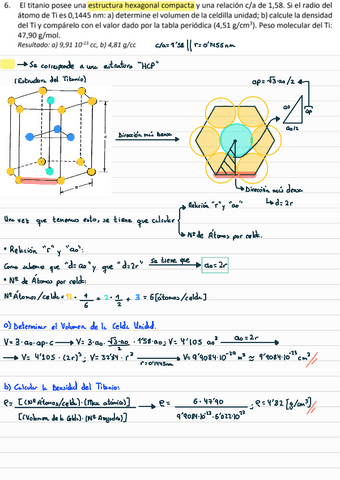 6. El titanio posee una estructura hexagonal compacta y una relación c/a de 1,58. Si el radio del
átomo de Ti es 0,1445 nm: a) determine el volumen de la celdilla unidad; b) calcule la densidad
del Ti y compárelo con el valor dado por la tabla periódica (4,51 g/cm³). Peso molecular del Ti:
47,90 g/mol.
Resultado: a) 9,91 10⁻²³ cc, b) 4,81 g/cc
c/a=1'58 || r=0'1445nm
→ Se corresponde a una estructura "HCP"
(Estructura del Titanio)
ap=√3·ao/2
ao
ap
ao/2
Dirección más densa
c
a
→ Dirección más densa
→ d=2r
→ Relación "r" y "ao"
Una vez que tenemos esto, se tiene que calcular
→ Nº de Átomos por celda.
• Relación "r" y "ao":
Como sabemos que "d=ao" y que "d=2r" Se tiene que → ao=2r
• Nº de Átomos por celda:
Nº Átomos/celda = 12·1/6 + 2·1/2 + 3 = 6 [átomos/celda]
a) Determinar el Volumen de la Celda Unidad.
V=3·ao·ap·c → V=3·ao·√3·ao/2·1'58·ao; V=4'105 ao³ ao=2r
→ V=4'105·(2r)³; V=32'84·r³ r=0'1445nm → V=9'9084·10⁻²⁹ m³ ≈ 9'9084·10⁻²³ cm³
b) Calcular la Densidad del Titanio:
ρ= [(Nº Átomos/celda)·(Masa atómica)] / [(Volumen de la Celda)·(Nº Avogadro)] → ρ= 6·47'90 / 9'9084·10⁻²³·6'022·10²³ ; ρ=4'82 [g/cm³]